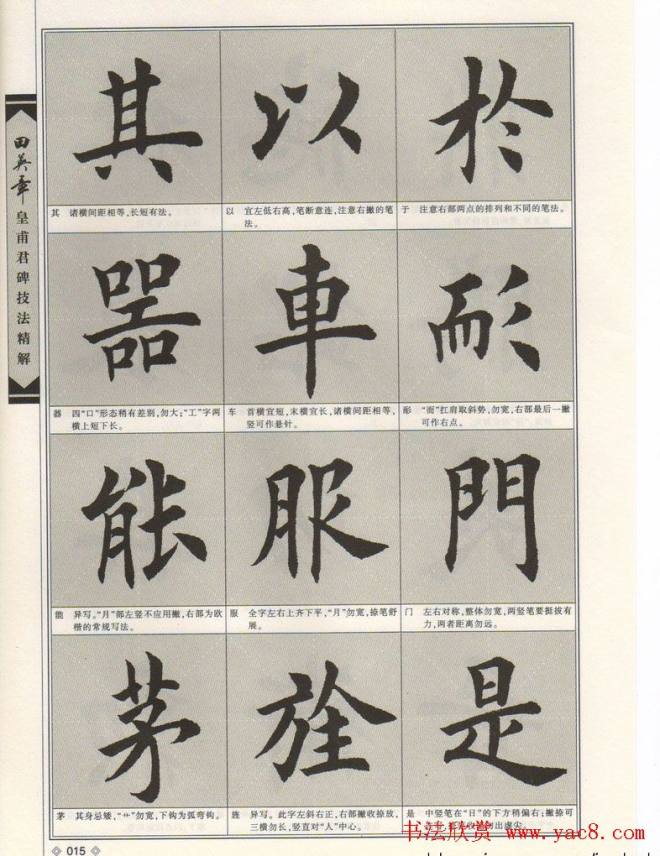 田英章
皇甫君碑技法精解
其 以 於
其 诸横间距相等,长短有法。
以 宜左低右高,笔断意连,注意右撇的笔
法。
于 注意右部两点的排列和不同的笔法。
器 車 耏
器 四“口”形态稍有差别,勿大;“工”字两
横上短下长。
车 首横宜短,末横宜长,诸横间距相等,
竖可作悬针。
耏 “而”扛肩取斜势,勿宽,右部最后一撇
可作右点。
能 服 門
能 异写。“月”部左竖不应用撇,右部为欧
楷的常规写法。
服 全字左右上齐下平,“月”勿宽,捺笔舒
展。
门 左右对称,整体勿宽,两竖笔要挺拔有
力,两者距离勿远。
茅 旌 是
茅 其身忌矮,“艹”勿宽,下钩为弧弯钩。
旌 异写。此字左斜右正,右部撇收捺放,
三横勿长,竖直对“人”中心。
是 中竖笔在“日”的下方稍偏右;撇捺可
书法欣赏 www.yac8.com
015